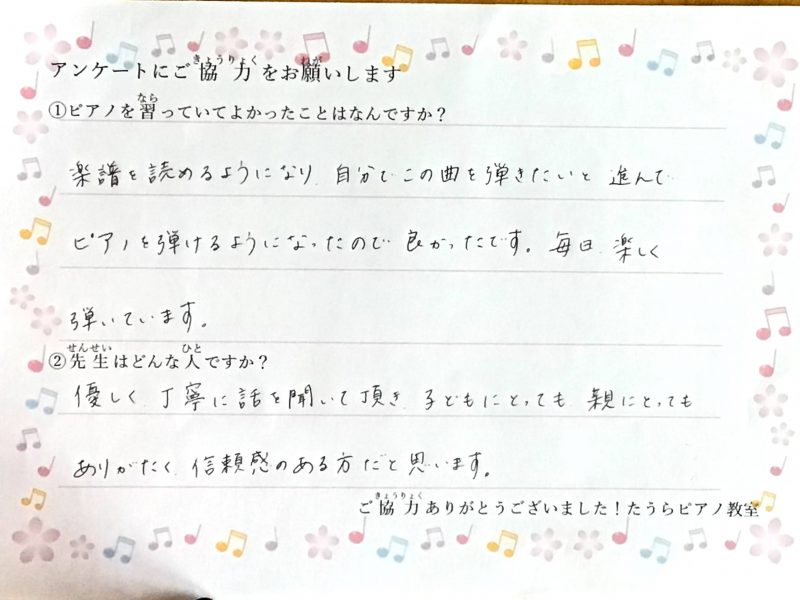 アンケートにご協力をお願いします
①ピアノを習っていてよかったことはなんですか？
楽譜を読めるようになり、自分でこの曲を弾きたいと 進んで
ピアノを弾けるようになったので 良かったです。毎日、楽しく
弾いています。
②先生はどんな人ですか？
優しく、丁寧に話を聞いて頂き、子どもにとっても、親にとっても
ありがたく、信頼感のある方だと思います。
ご協力ありがとうございました！たうらピアノ教室